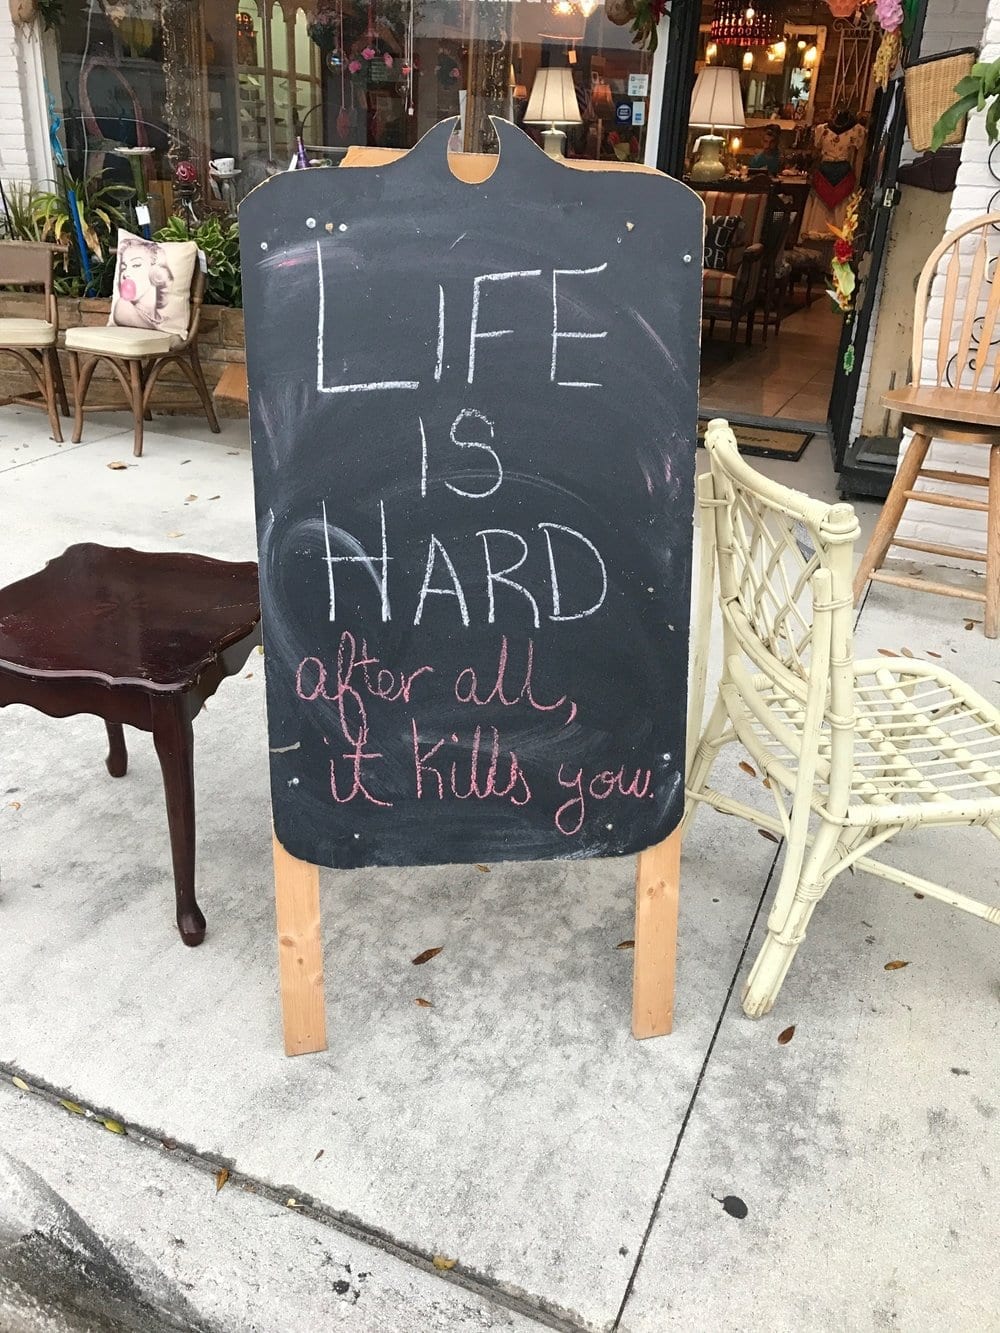 LIFE
IS
HARD
after all,
it kills you.